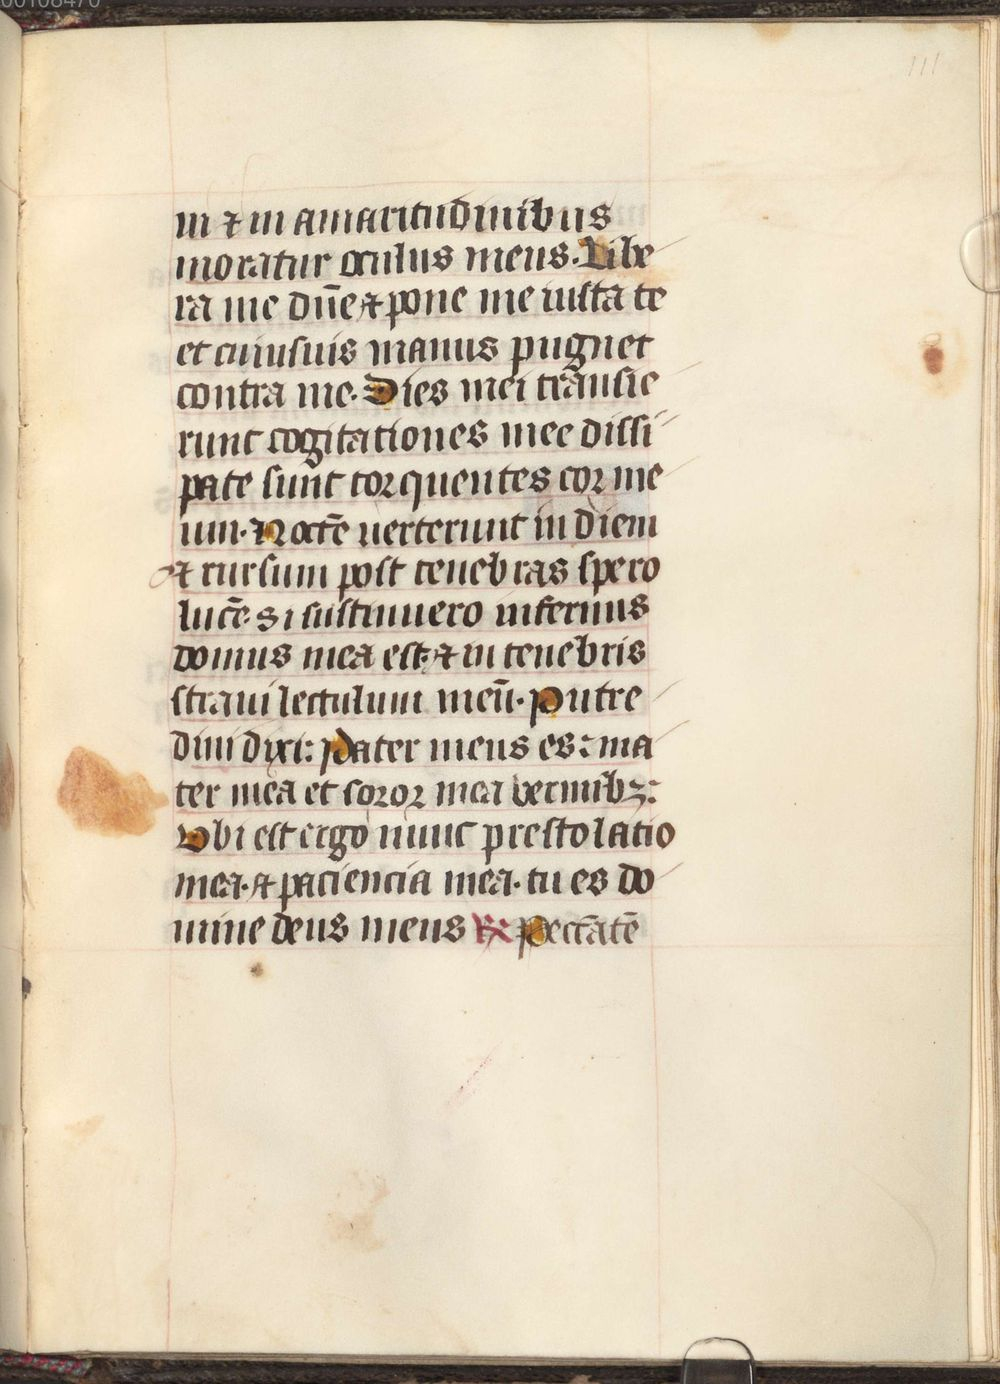 00108470
111
ui & in amaritudinibus
moratur oculus meus. Libe
ra me dn̄e & pone me iuxta te
et cuiusuis manus pugnet
contra me. Dies mei transie
runt cogitationes mee dissi
pate sunt torquentes cor me
um. Noctē uerterunt in diem
& rursum post tenebras spero
lucē. Si sustinuero infernus
domus mea est. & in tenebris
straui lectulum meū. Putre
dini dixi: Pater meus es: ma
ter mea et soror mea vermibꝫ:
Vbi est ergo nunc prestolatio
mea. & paciencia mea. tu es do
mine deus meus ℟ Peccātē